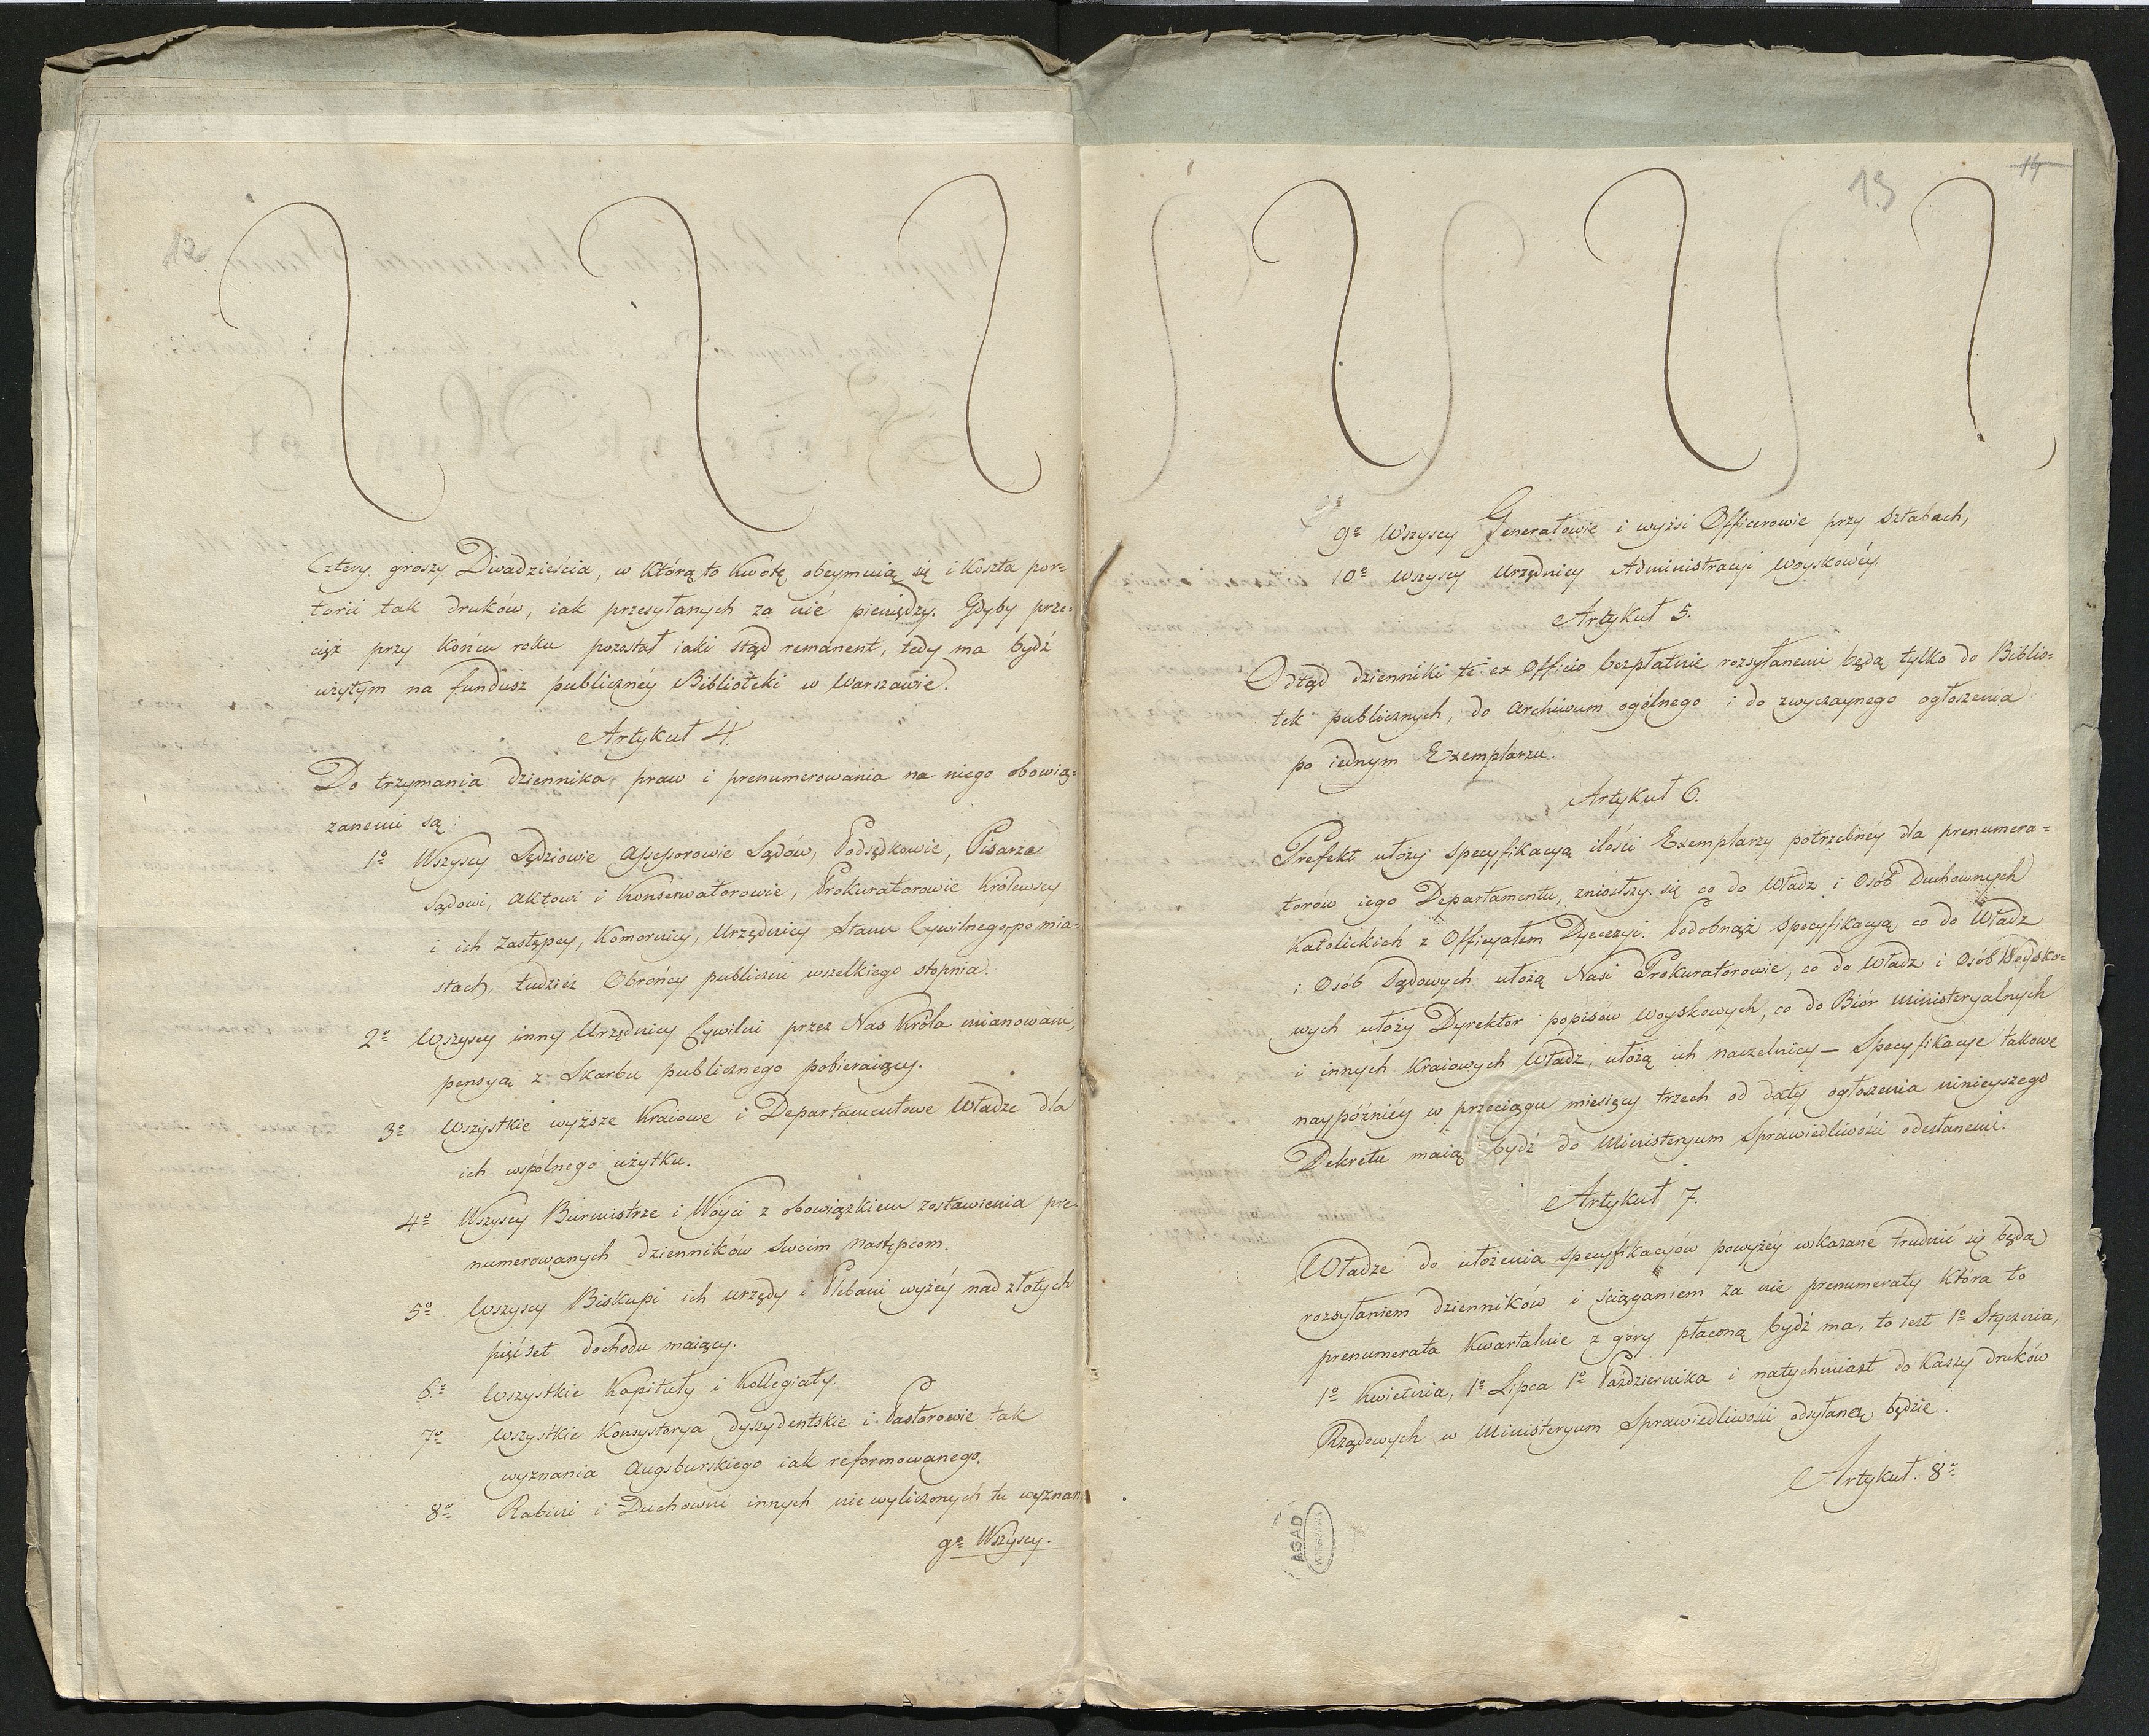 12
Cztery groszy Dwadzieścia, w którą to kwotę obeymuią się i koszta por=
torii tak druków, iak przesyłanych za nié pieniędzy. Gdyby prze=
cięż przy końcu roku pozostał iaki stąd remanent, tedy ma bydź
użytym na fundusz publicznéy Biblioteki w Warszawie.
Artykuł 4.
Do trzymania dziennika praw i prenumerowania na niego obowią=
zanemi są:
1º Wszyscy Sędziowie Assessorowie Sądów, Podsędkowie, Pisarze
Sądowi, Aktowi i Konserwatorowie, Prokuratorowie Królewscy
i ich zastępcy, Komornicy, Urzędnicy Stanu Cywilnego po mia=
stach, tudzież Obrońcy publiczni wszelkiego stopnia.
2º Wszyscy inny Urzędnicy Cywilni przez Nas Króla mianowani,
pensyą z Skarbu publicznego pobieraiący.
3º Wszystkie wyższe Kraiowe i Departamentowe Władze dla
ich wspólnego użytku.
4º Wszyscy Burmistrze i Wóyci z obowiązkiem zostawienia pre=
numerowanych dzienników swoim następcom.
5º Wszyscy Biskupi ich urzędy i Plebani wyżéy nad złotych
pięćset dochodu maiący.
6º Wszystkie Kapituły i Kollegiaty.
7º Wszystkie Konsystorya dyssydentskie i Pastorowie tak
wyznania Augsburskiego iak reformowanego.
8º Rabini i Duchowni innych nie wyliczonych tu wyznań
9º Wszyscy.
13
14
9º Wszyscy Generałowie i wyżsi Officerowie przy Sztabach,
10º Wszyscy Urzędnicy Administracyi Woyskowéy.
Artykuł 5.
Odtąd dzienniki te ex Officio bezpłatnie rozsyłanemi będą tylko do Biblio=
tek publicznych, do Archiwum ogólnego i do zwyczaynego ogłoszenia
po iednym Exemplarzu.
Artykuł 6.
Prefekt ułoży specyfikacyą ilości Exemplarzy potrzebnéy dla prenumera=
torów iego Departamentu, zniósłszy się co do Władz i Osób Duchownych
Katolickich z Officyałem Dyecezyi. Podobnąż specyfikacyą co do Władz
i Osób Sądowych ułożą Nasi Prokuratorowie, co do Władz i Osób Woysko=
wych ułoży Dyrektor popisów woyskowych, co do Biór ministeryalnych
i innych Kraiowych Władz, ułożą ich naczelnicy — Specyfikacye takowe
naypóźniéy w przeciągu miesięcy trzech od daty ogłoszenia ninieyszego
Dekretu maią bydź do Ministeryum Sprawiedliwości odesłanemi.
Artykuł 7.
Władze do ułożenia specyfikacyów powyżéy wskazane trudnić się będą
rozsyłaniem dzienników i ściąganiem za nie prenumeraty która to
prenumerata kwartalnie z góry płaconą bydź ma, to iest 1º Stycznia,
1º Kwietnia, 1º Lipca 1º Października i natychmiast do Kassy druków
Rządowych w Ministeryum Sprawiedliwości odsyłaną będzie.
Artykuł. 8º
AGAD
WARSZAWA